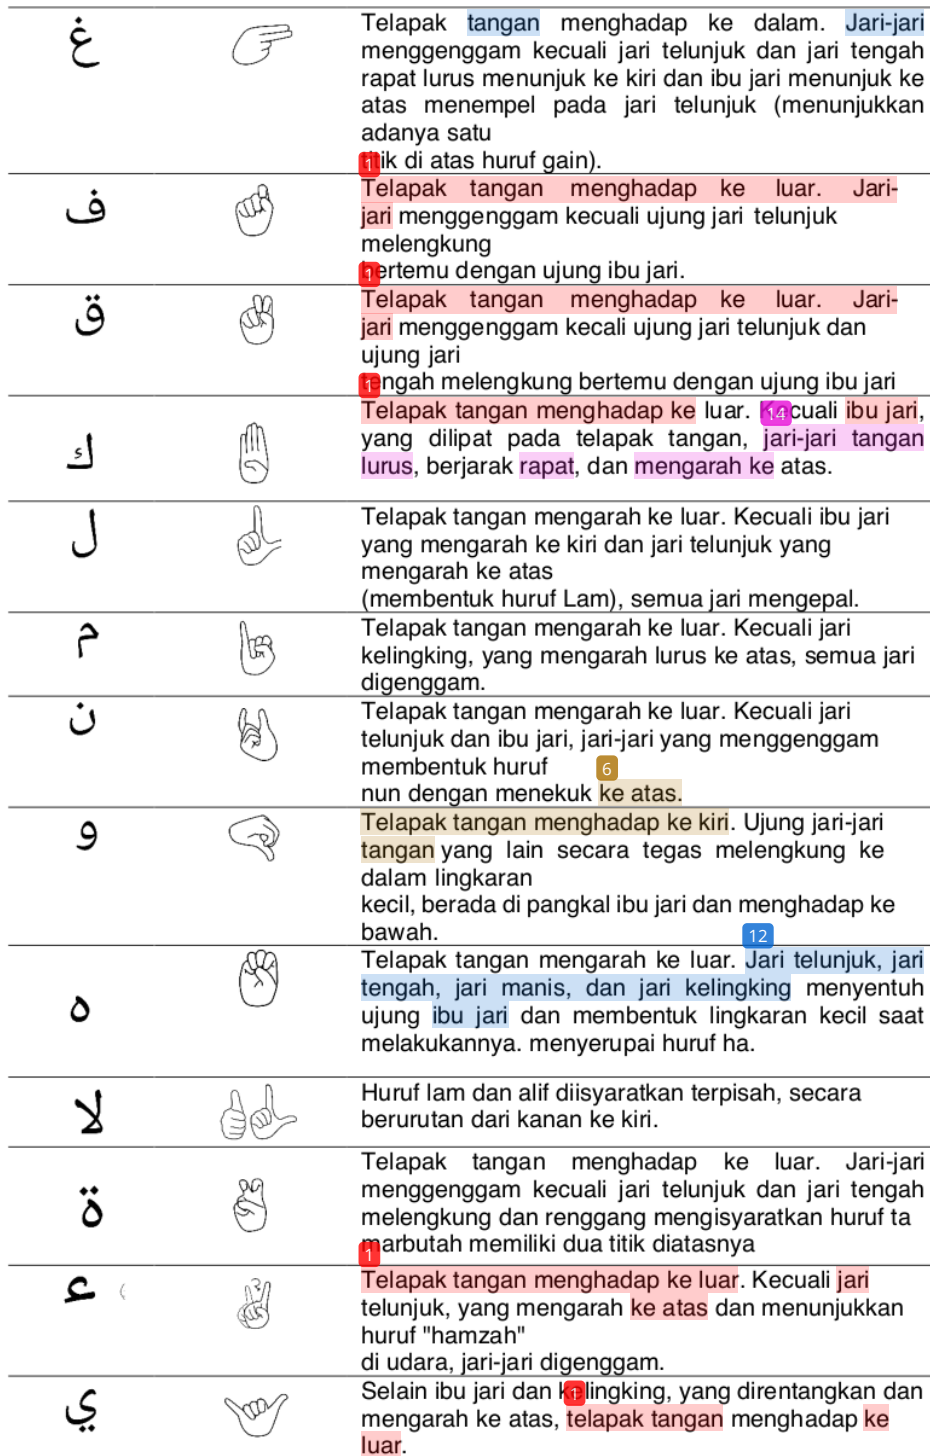 غ
Telapak tangan menghadap ke dalam. Jari-jari
menggenggam kecuali jari telunjuk dan jari tengah
rapat lurus menunjuk ke kiri dan ibu jari menunjuk ke
atas menempel pada jari telunjuk (menunjukkan
adanya satu
titik di atas huruf gain).
1
ف
Telapak tangan menghadap ke luar. Jari-
jari menggenggam kecuali ujung jari telunjuk
melengkung
bertemu dengan ujung ibu jari.
1
ق
Telapak tangan menghadap ke luar. Jari-
jari menggenggam kecali ujung jari telunjuk dan
ujung jari
tengah melengkung bertemu dengan ujung ibu jari
1
ك
Telapak tangan menghadap ke luar. Kecuali ibu jari,
14
yang dilipat pada telapak tangan, jari-jari tangan
lurus, berjarak rapat, dan mengarah ke atas.
ل
Telapak tangan mengarah ke luar. Kecuali ibu jari
yang mengarah ke kiri dan jari telunjuk yang
mengarah ke atas
(membentuk huruf Lam), semua jari mengepal.
م
Telapak tangan mengarah ke luar. Kecuali jari
kelingking, yang mengarah lurus ke atas, semua jari
digenggam.
ن
Telapak tangan mengarah ke luar. Kecuali jari
telunjuk dan ibu jari, jari-jari yang menggenggam
membentuk huruf
6
nun dengan menekuk ke atas.
و
Telapak tangan menghadap ke kiri. Ujung jari-jari
tangan yang lain secara tegas melengkung ke
dalam lingkaran
kecil, berada di pangkal ibu jari dan menghadap ke
bawah.
12
ه
Telapak tangan mengarah ke luar. Jari telunjuk, jari
tengah, jari manis, dan jari kelingking menyentuh
ujung ibu jari dan membentuk lingkaran kecil saat
melakukannya. menyerupai huruf ha.
لا
Huruf lam dan alif diisyaratkan terpisah, secara
berurutan dari kanan ke kiri.
ة
Telapak tangan menghadap ke luar. Jari-jari
menggenggam kecuali jari telunjuk dan jari tengah
melengkung dan renggang mengisyaratkan huruf ta
marbutah memiliki dua titik diatasnya
1
ء
Telapak tangan menghadap ke luar. Kecuali jari
telunjuk, yang mengarah ke atas dan menunjukkan
huruf "hamzah"
di udara, jari-jari digenggam.
ي
Selain ibu jari dan kelingking, yang direntangkan dan
1
mengarah ke atas, telapak tangan menghadap ke
luar.